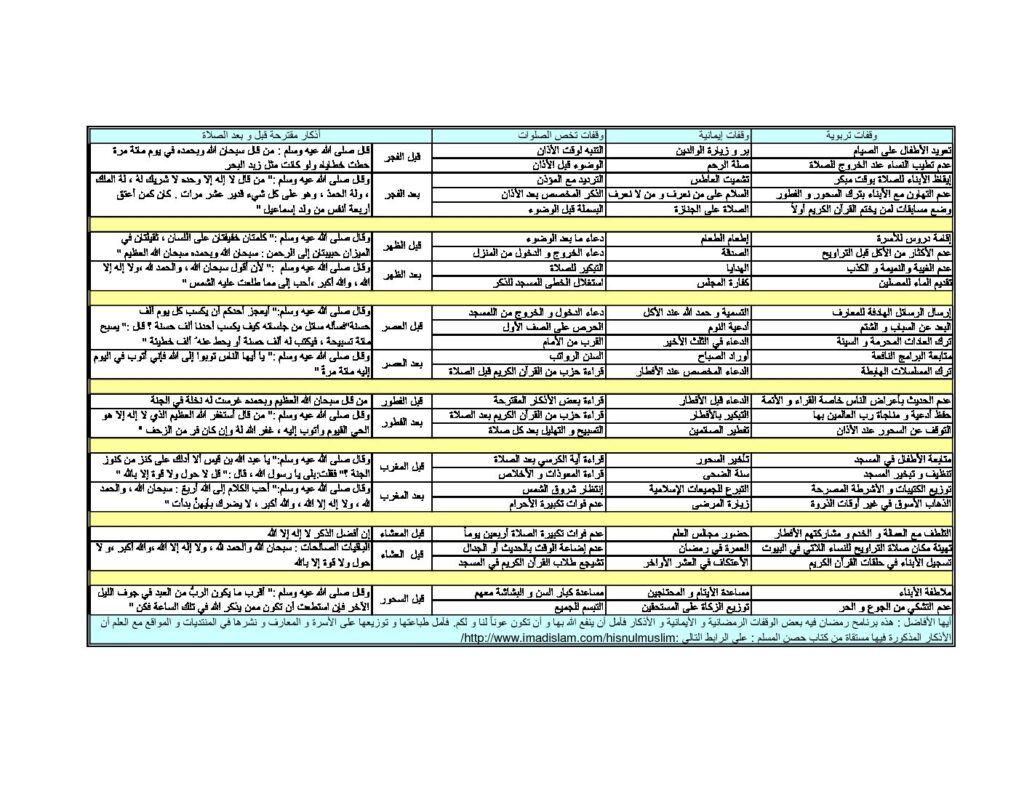 وقفات تربوية وقفات إيمانية وقفات تخص الصلوات أذكار مقترحة قبل و بعد الصلاة
تعويد الأطفال على الصيام بر و زيارة الوالدين التنبه لوقت الأذان قبل الفجر قال صلى الله عيه وسلم : من قال سبحان الله وبحمده في يوم مائة مرة
عدم تطيب النساء عند الخروج للصلاة صلة الرحم الوضوء قبل الأذان حطت خطاياه ولو كانت مثل زبد البحر
إيقاظ الأبناء للصلاة بوقت مبكر تشميت العاطس الترديد مع المؤذن بعد الفجر وقال صلى الله عيه وسلم :" من قال لا إله إلا وحده لا شريك لهُ ، لهُ الملك
عدم التهاون مع الأبناء بترك السحور و الفطور السلام على من نعرف و من لا نعرف الذكر المخصص بعد الأذان ، ولهُ الحمدُ ، وهو على كل شيء قدير عشر مرات . كان كمن أعتق
وضع مسابقات لمن يختم القرآن الكريم أولاً الصلاة على الجنازة البسملة قبل الوضوء أربعة أنفس من ولد إسماعيل "
إقامة دروس للأسرة إطعام الطعام دعاء ما بعد الوضوء قبل الظهر وقال صلى الله عيه وسلم :" كلمتان خفيفتان على اللسان ، ثقيلتان في
عدم الأكثار من الأكل قبل التراويح الصدقة دعاء الخروج و الدخول من المنزل الميزان حبيبتان إلى الرحمن : سبحان الله وبحمده سبحان الله العظيم "
عدم الغيبة والنميمة و الكذب الهدايا التبكير للصلاة بعد الظهر وقال صلى الله عيه وسلم :" لأن أقول سبحان الله ، والحمد لله ،ولا إله إلا
تقديم الماء للمصلين كفارة المجلس استغلال الخطى للمسجد للذكر الله ، والله أكبر ،أحب إلى مما طلعت عليه الشمس "
إرسال الرسائل الهادفة للمعارف التسمية و حمد الله عند الأكل دعاء الدخول و الخروج من اللمسجد قبل العصر وقال صلى الله عيه وسلم:" أيعجز أحدكم أن يكسب كل يوم ألف
البعد عن السباب و الشتم أدعية النوم الحرص على الصف الأول حسنة"فسأله سائل من جلسائه كيف يكسب أحدنا ألف حسنة ؟ قال :" يسبح
ترك العادات المحرمة و السيئة الدعاء في الثلث الأخير القرب من الأمام مائة تسبيحة ، فيكتب له ألف حسنة أو يحط عنه ألف خطيئة "
متابعة البرامج النافعة أوراد الصباح السنن الرواتب بعد العصر وقال صلى الله عيه وسلم :" يا أيها الناس توبوا إلى الله فإني أتوب في اليوم
ترك المسلسلات الهابطة الدعاء المخصص عند الأفطار قراءة حزب من القرآن الكريم قبل الصلاة إليه مائة مرةً "
عدم الحديث بأعراض الناس خاصة القراء و الأئمة الدعاء قبل الأفطار قراءة بعض الأذكار المقترحة قبل الفطور من قال سبحان الله العظيم وبحمده غرست له نخلة في الجنة
حفظ أدعية و مناجاة رب العالمين بها التبكير بالأفطار قراءة حزب من القرآن الكريم بعد الصلاة بعد الفطور وقال صلى الله عيه وسلم :" من قال أستغفر الله العظيم الذي لا إله إلا هو
التوقف عن السحور عند الأذان تفطير الصائمين التسبيح و التهليل بعد كل صلاة الحي القيوم وأتوب إليه ، غفر الله لهُ وإن كان فر من الزحف "
متابعة الأطفال في المسجد تأخير السحور قراءة آية الكرسي بعد الصلاة قبل المغرب وقال صلى الله عيه وسلم:" يا عبد الله بن قيس ألا أدلك على كنز من كنوز
تنظيف و تبخير المسجد سنة الضحى قراءة المعوذات و الأخلاص الجنة ؟" فقلت:بلى يا رسول الله ، قال :" قل لا حول ولا قوة إلا بالله "
توزيع الكتيبات و الأشرطة المصرحة التبرع للجميعات الإسلامية إنتظار شروق الشمس بعد المغرب وقال صلى الله عيه وسلم:" أحب الكلام إلى الله أربعَ : سبحان الله ، والحمد
الذهاب الأسوق في غير أوقات الذروة زيارة المرضى عدم فوات تكبيرة الأحرام لله ، ولا إله إلا الله ، والله أكبر ، لا يضرك بأيهنَّ بدأت "
التلطف مع العمالة و الخدم و مشاركتهم الأفطار حضور مجالس العلم عدم فوات تكبيرة الصلاة أربعين يوماً قبل المعشاء إن أفضل الذكر لا إله إلا الله
تهيئة مكان صلاة التراويح للنساء اللاتي في البيوت العمرة في رمضان عدم إضاعة الوقت بالحديث أو الجدال قبل العشاء الباقيات الصالحات : سبحان الله والحمد لله ، ولا إله إلا الله ،والله أكبر ،و لا
تسجيل الأبناء في حلقات القرآن الكريم الأعتكاف في العشر الأواخر تشجيع طلاب القرآن الكريم في المسجد حول ولا قوة إلا بالله
ملاطفة الأبناء مساعدة الأيتام و المحتاجين مساعدة كبار السن و البشاشة معهم قبل السحور وقال صلى الله عيه وسلم :" أقرب ما يكون الربُّ من العبد في جوف الليل
عدم التشكي من الجوع و الحر توزيع الزكاة على المستحقين التبسم للجميع الآخر فإن استطعت أن تكون ممن يذكر الله في تلك الساعة فكن "
أيها الأفاضل : هذه برنامج رمضان فيه بعض الوقفات الرمضانية و الأيمانية و الأذكار فأمل أن ينفع الله بها و أن تكون عوناً لنا و لكم. فأمل طباعتها و توزيعها على الأسرة و المعارف و نشرها في المنتديات و المواقع مع العلم أن
الأذكار المذكورة فيها مستقاة من كتاب حصن المسلم : على الرابط التالي :http://www.imadislam.com/hisnulmuslim/